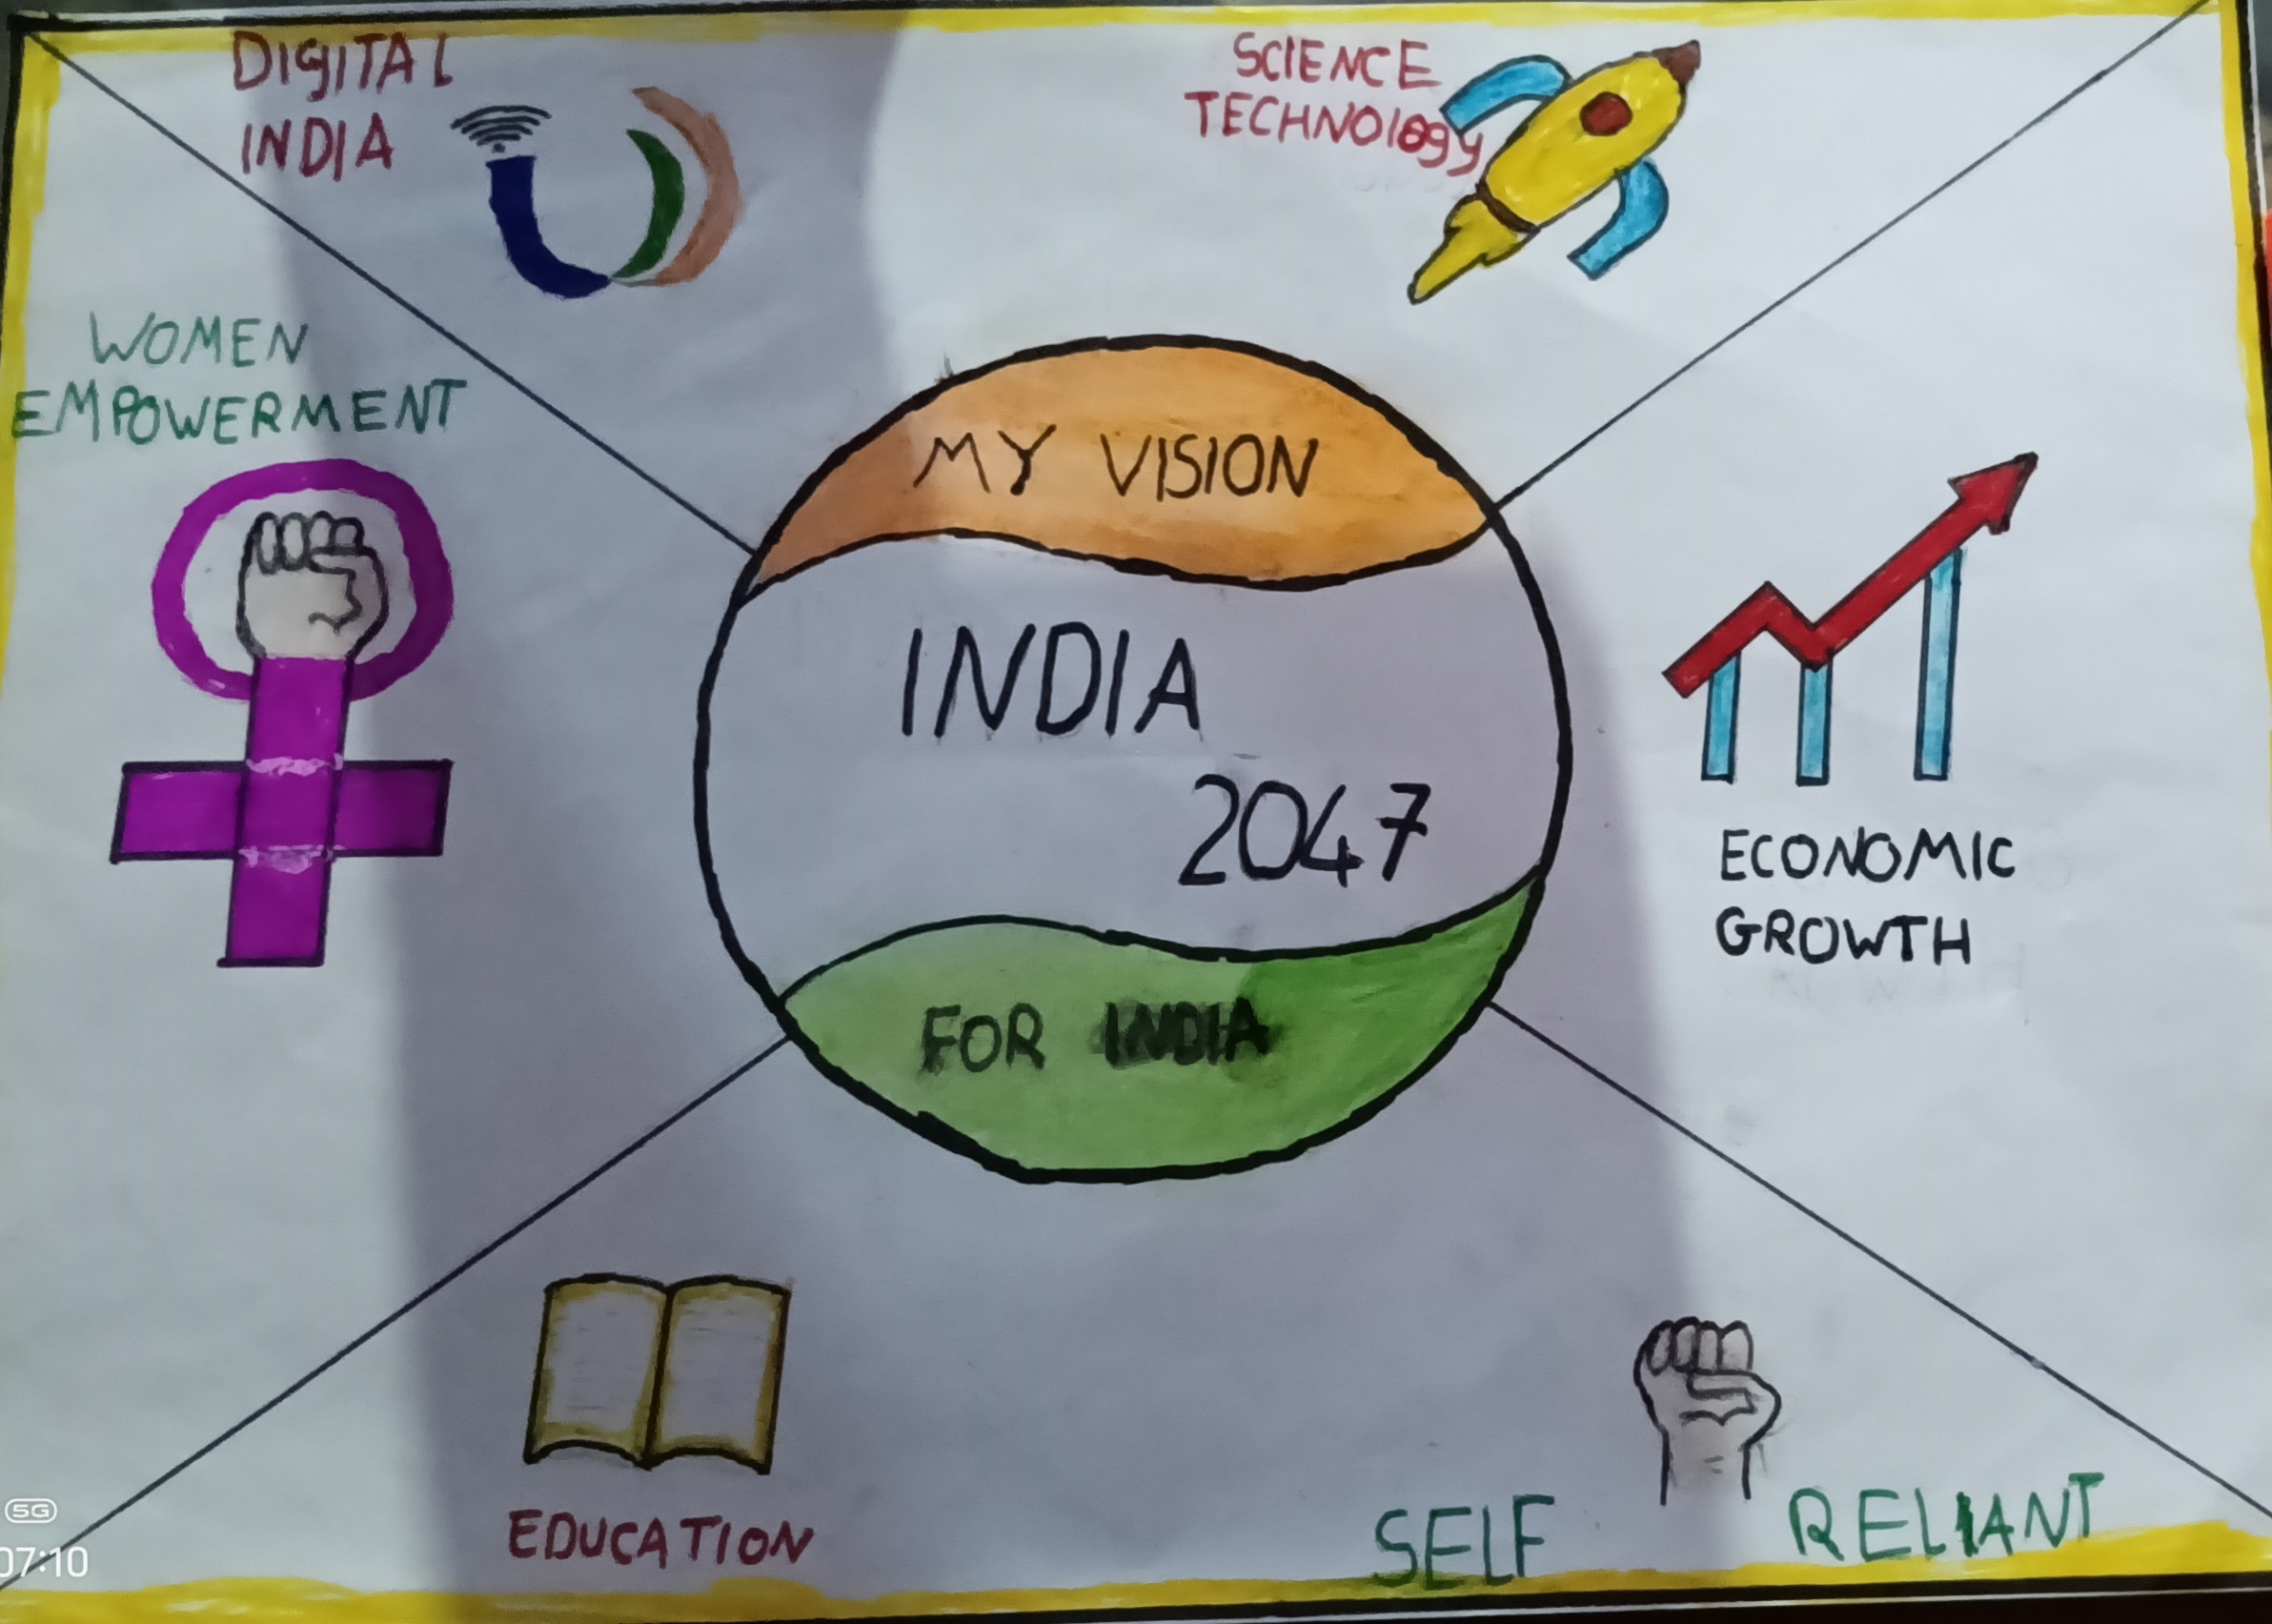 DIGITAL
INDIA
SCIENCE
TECHNOlogy
WOMEN
EMPOWERMENT
MY VISION
INDIA
2047
FOR INDIA
ECONOMIC
GROWTH
EDUCATION
SELF RELIANT
5G
07:10